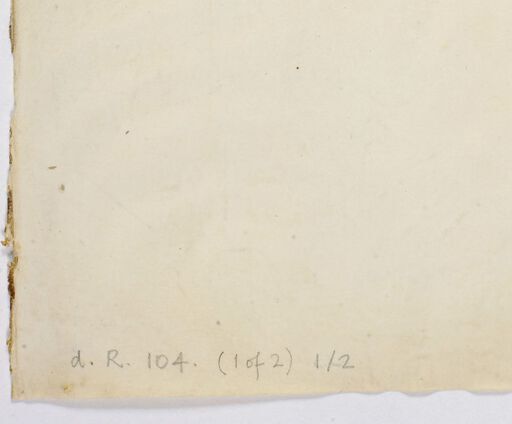 d. R. 104. (1 of 2) 1/2